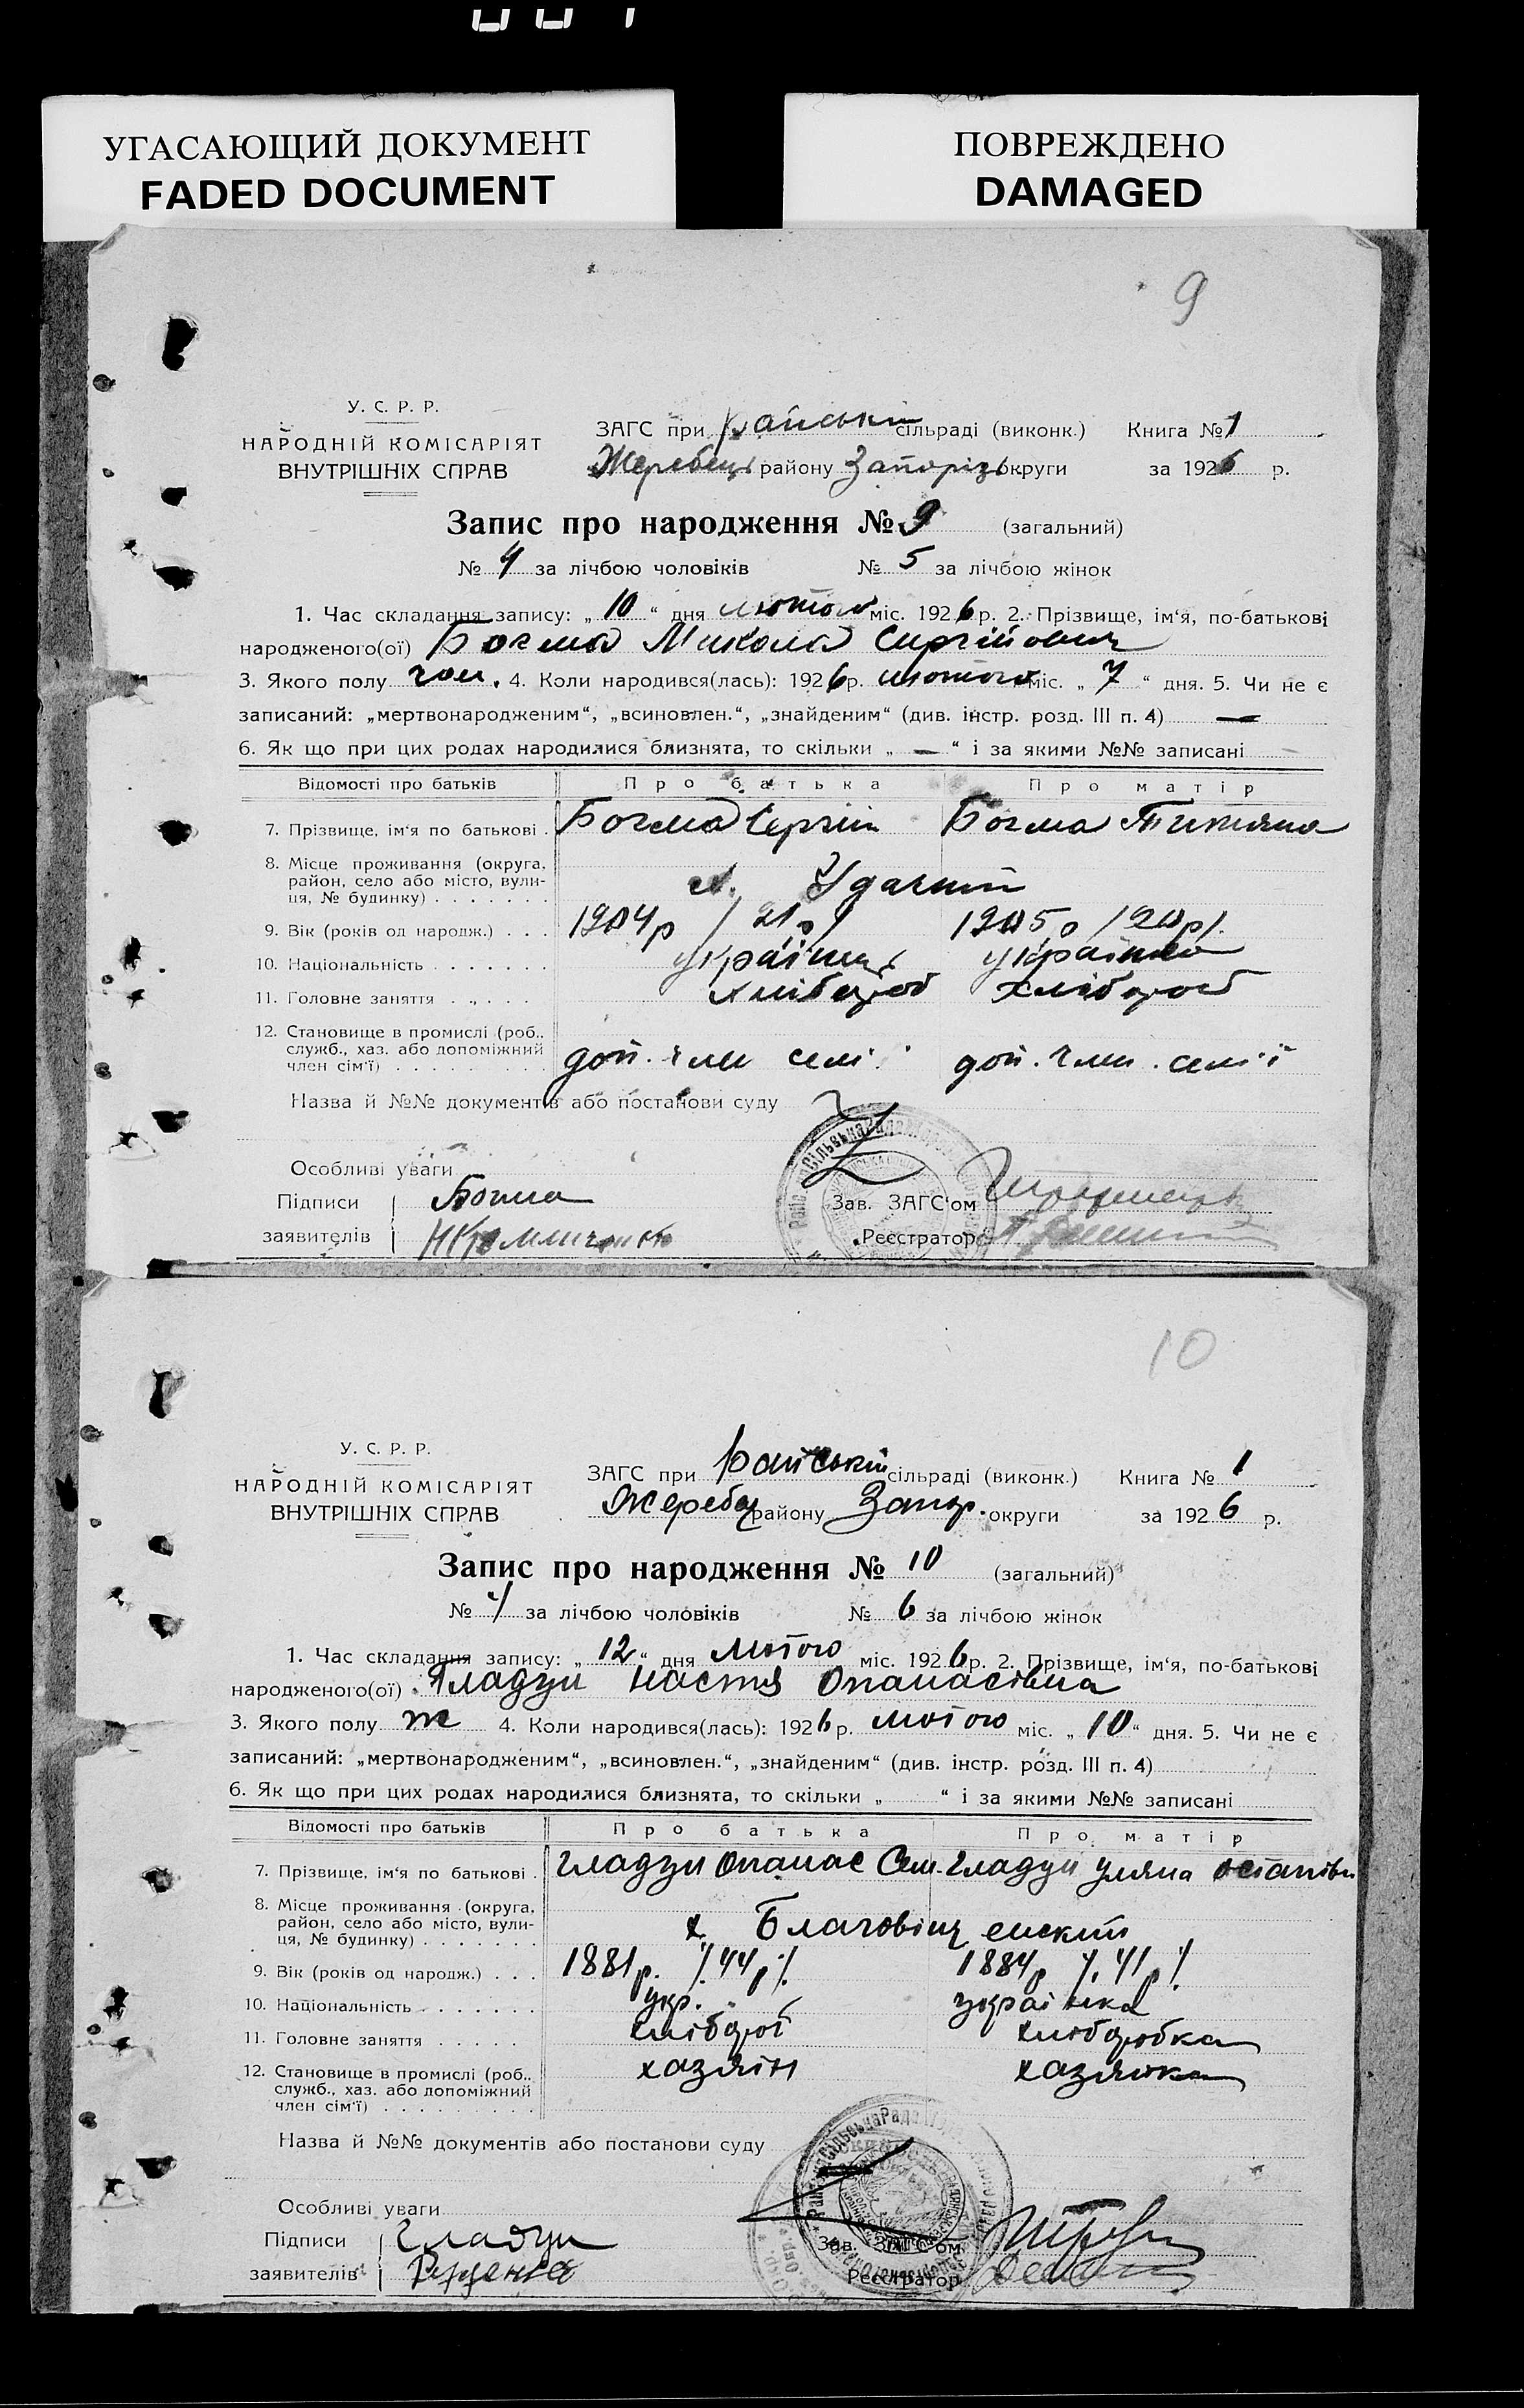 УГАСАЮЩИЙ ДОКУМЕНТ
FADED DOCUMENT
ПОВРЕЖДЕНО
DAMAGED
9
У. С. Р. Р.
НАРОДНІЙ КОМІСАРІЯТ
ВНУТРІШНІХ СПРАВ
ЗАГС при Райській сільраді (виконк.) Книга № 1
Жеребець району Запоріз округи за 1926 р.
Запис про народження № 9 (загальний)
№ 4 за лічбою чоловіків № 5 за лічбою жінок
1. Час складання запису: „ 10 “ дня лютого міс. 1926 р. 2. Прізвище, ім‘я, по-батькові
народженого(ої) Богма Микола Сиргійович
3. Якого полу чол. 4. Коли народився(лась): 1926 р. лютого міс. „ 7 “ дня. 5. Чи не є
записаний: „мертвонародженим“, „всиновлен.“, „знайденим“ (див. інстр. розд. III п. 4) —
6. Як що при цих родах народилися близнята, то скільки „ — “ і за якими №№ записані
Відомості про батьків Про батька Про матір
7. Прізвище, ім‘я по батькові . Богма Сергій Богма Титяна
8. Місце проживання (округа,
район, село або місто, вули-
ця, № будинку) . . . . . . . х. Удачний
9. Вік (років од народж.) . . . 1904р /21р/ 1905р /20р/.
10. Національність . . . . . . . українець українка
11. Головне заняття . . . . . хлібороб хлібороб
12. Становище в промислі (роб..
служб., хаз. або допоміжний
член сім‘ї) . . . . . . . . . доп. член семі доп. член. семії
Назва й №№ документів або постанови суду
Особливі уваги
Підписи Богма
заявителів
Зав. ЗАГС‘ом
Реєстратор
10
У. С. Р. Р.
НАРОДНІЙ КОМІСАРІЯТ
ВНУТРІШНІХ СПРАВ
ЗАГС при Райській сільраді (виконк.) Книга № 1
Жеребец району Запор. округи за 1926 р.
Запис про народження № 10 (загальний)
№ 4 за лічбою чоловіків № 6 за лічбою жінок
1. Час складання запису: „ 12 “ дня Лютого міс. 1926 р. 2. Прізвище, ім‘я, по-батькові
народженого(ої) Гладун Настя Опанасівна
3. Якого полу ж 4. Коли народився(лась): 1926 р. лютого міс. „ 10 “ дня. 5. Чи не є
записаний: „мертвонародженим“, „всиновлен.“, „знайденим“ (див. інстр. розд. III п. 4)
6. Як що при цих родах народилися близнята, то скільки „ “ і за якими №№ записані
Відомості про батьків Про батька Про матір
7. Прізвище, ім‘я по батькові . Гладун Опанас Сем. Гладун Уляна Остапівн
8. Місце проживання (округа,
район, село або місто, вули-
ця, № будинку) . . . . . . . х Благовіщенский
9. Вік (років од народж.) . . . 1881р. /.44р/. 1884р /.41р/.
10. Національність . . . . . . . укр. українка
11. Головне заняття . . . . . хлібороб хліборобка
12. Становище в промислі (роб..
служб., хаз. або допоміжний
член сім‘ї) . . . . . . . . . хазяїн хазяйка
Назва й №№ документів або постанови суду
Особливі уваги
Підписи Гладун
заявителів Руденко
Зав. ЗАГС‘ом
Реєстратор